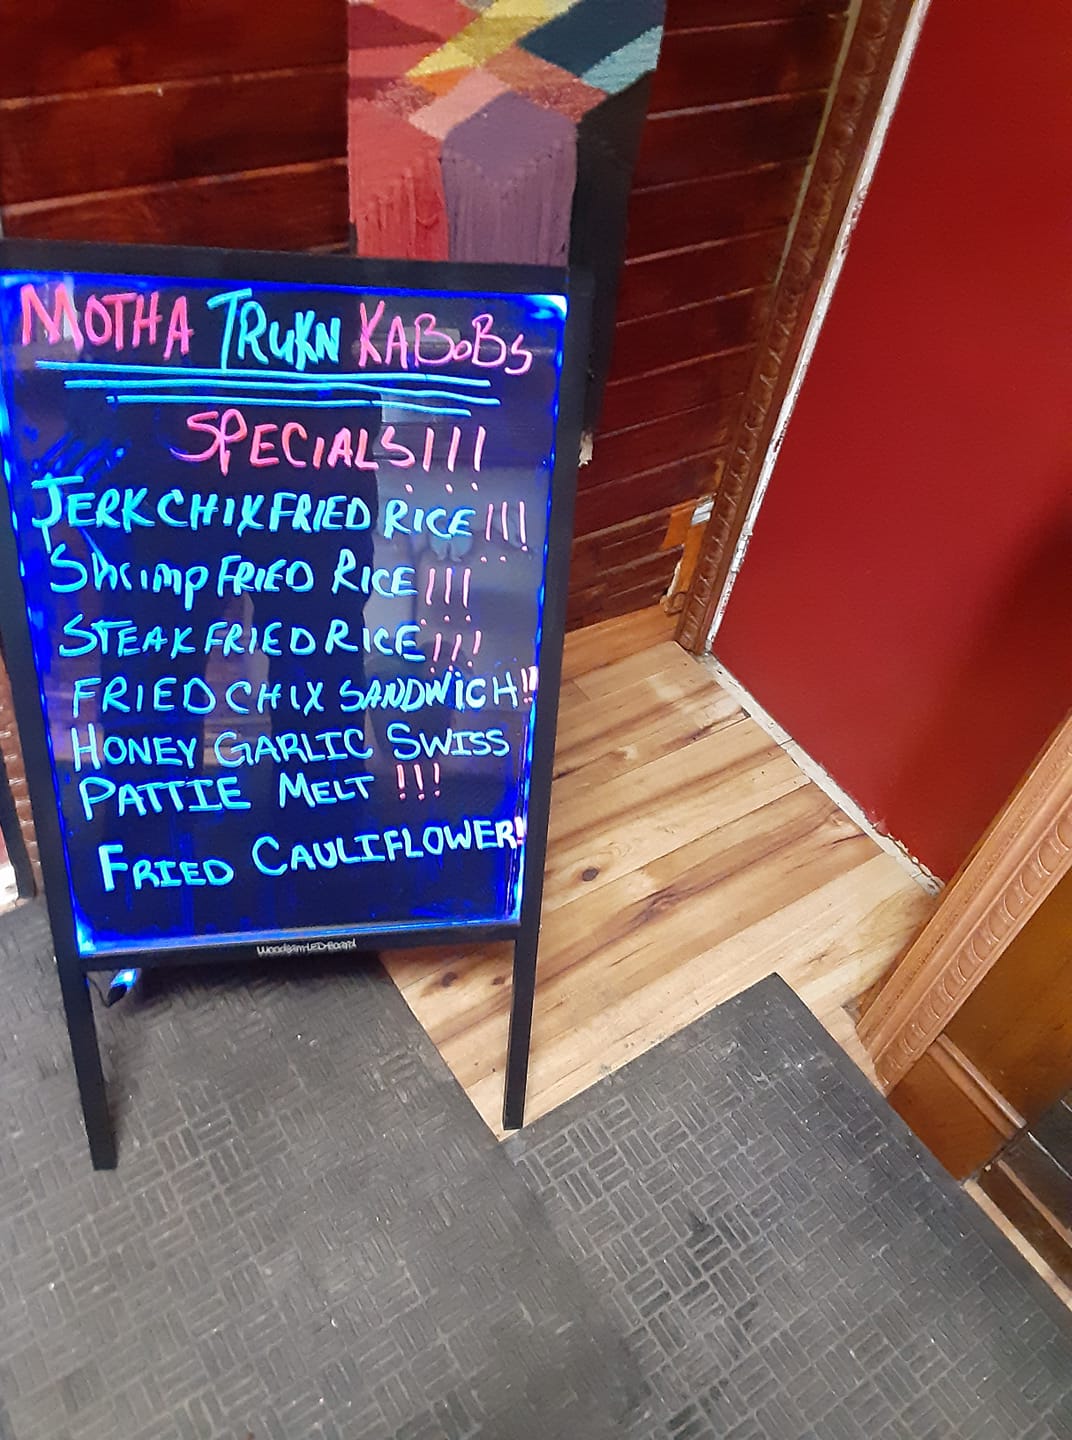 MOTHA TRUKN KABOBS
SPECIALS!!!
JERK CHIX FRIED RICE!!!
Shrimp FRIED RICE!!!
STEAK FRIED RICE!!!
FRIED CHIX SANDWICH!!
HONEY GARLIC SWISS
PATTIE MELT !!!
FRIED CAULIFLOWER!